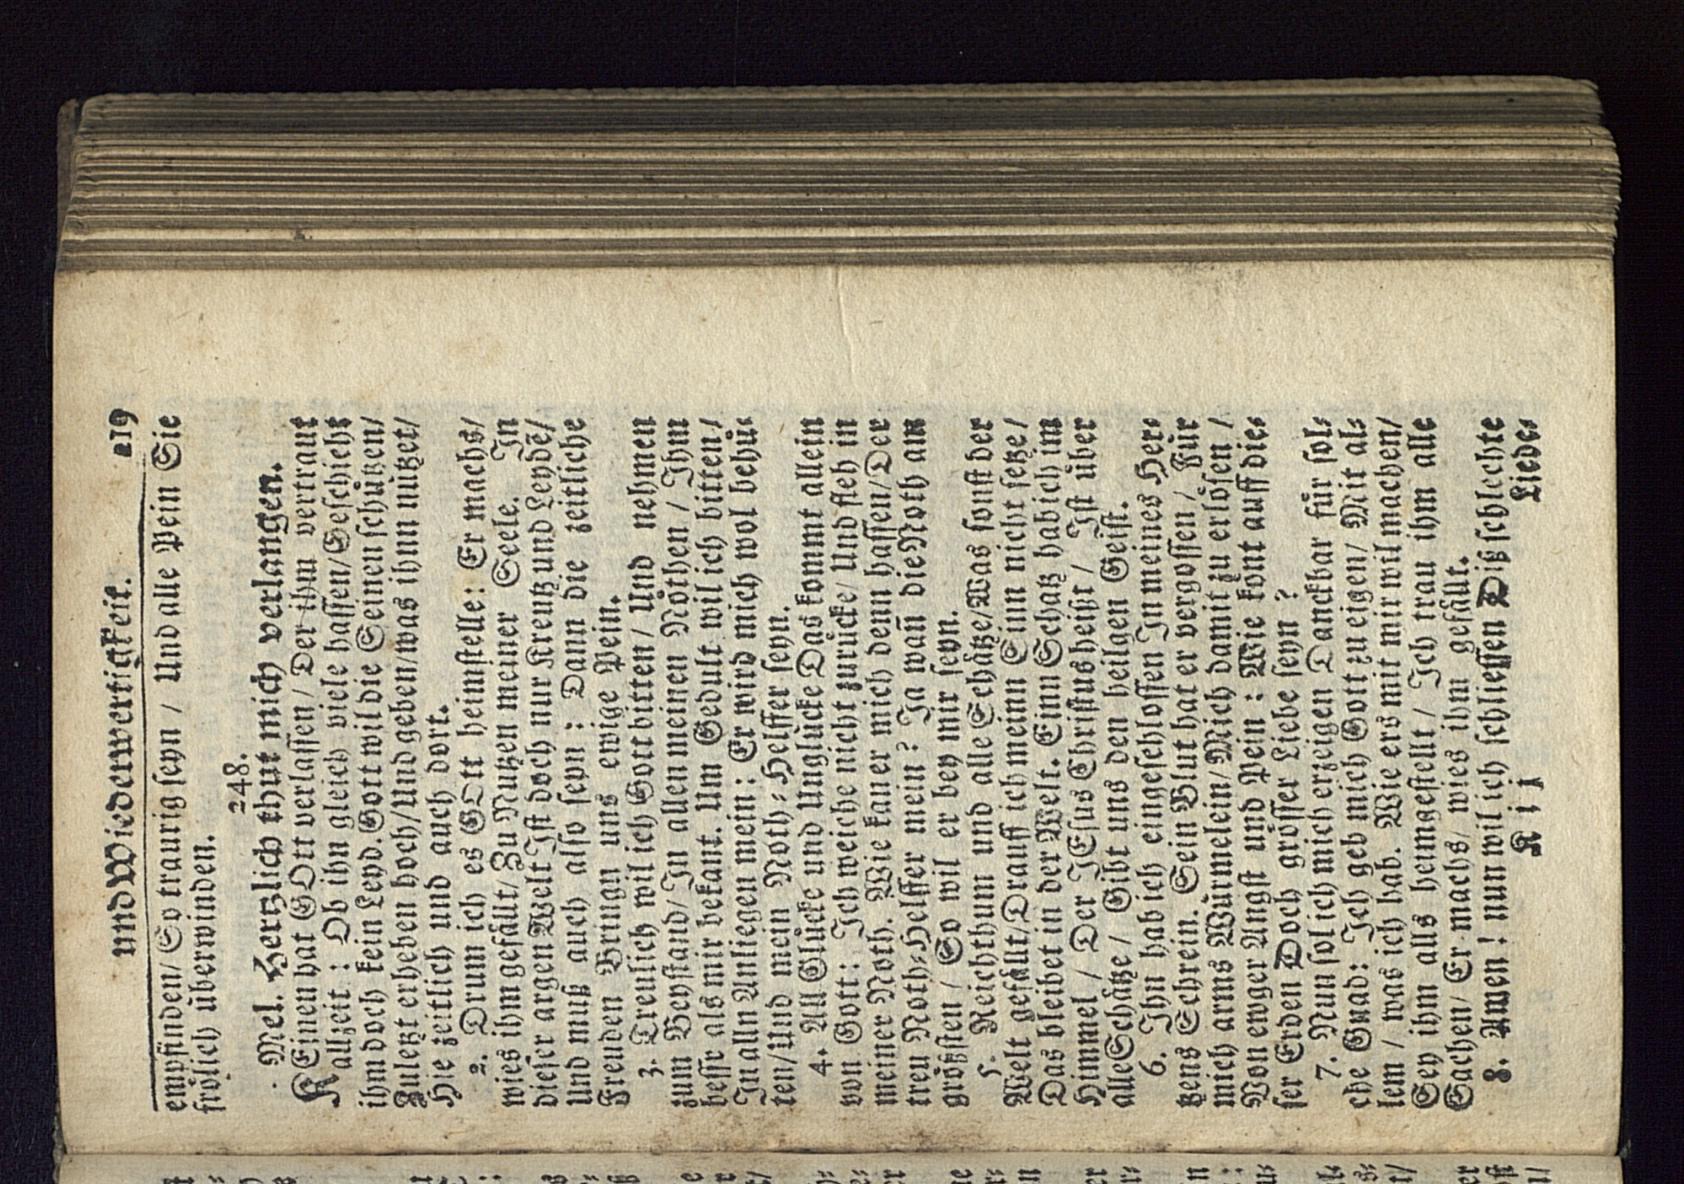 und Wiederwertigkeit. 219
empfinden/ So traurig seyn / Und alle Pein Sie
frölich überwinden.
248.
Mel. Hertzlich thut mich verlangen.
KEinen hat GOtt verlassen / Der ihm vertraut
allzeit : Ob ihn gleich viele hassen/Geschieht
ihm doch kein Leyd. Gott wil die Seinen schützen/
Zuletzt erheben hoch/Und geben/was ihn nützet/
Hie zeitlich und auch dort.
2. Drum ich es GOtt heimstelle: Er machs/
wies ihm gefällt/ Zu Nutzen meiner Seele. In
dieser argen Welt Ist doch nur Kreutz und Leydē/
Und muß auch also seyn : Dann die zeitliche
Freuden Bringn uns ewige Pein.
3. Treulich wil ich Gott bitten / Und nehmen
zum Beystand/ In allen meinen Nöthen / Ihm
bessr als mir bekant. Um Gedult wil ich bitten/
In alln Anliegen mein: Er wird mich wol behü-
ten/Und mein Noth-Helffer seyn.
4. All Glücke und Unglücke Das kommt allein
von Gott: Ich weiche nicht zurücke/ Und flieh in
meiner Noth. Wie kan er mich denn hassen/Der
treu Noth-Helffer mein? Ja wañ die Noth am
größsten / So wil er bey mir seyn.
5. Reichthum und alle Schätze/Was sonst der
Welt gefällt/Drauff ich meinn Sinn nicht setze/
Das bleibet in der Welt. Einn Schatz hab ich im
Himmel / Der JEsus Christus heißt / Ist über
alle Schätze / Gibt uns den heilgen Geist.
6. Ihn hab ich eingeschlossen In meines Her-
tzens Schrein. Sein Blut hat er vergossen / Für
mich arms Würmelein/Mich damit zu erlösen /
Von ewger Angst und Pein : Wie könt auff die-
ser Erden Doch grösser Liebe seyn ?
7. Nun sol ich mich erzeigen Danckbar für sol-
che Gnad: Ich geb mich Gott zu eigen/ Mit al-
lem / was ich hab. Wie ers mit mir wil machen/
Sey ihm alls heimgestellt / Ich trau ihm alle
Sachen/ Er machs/ wies ihm gefällt.
8. Amen ! nun wil ich schliessen Diß schlechte
K ij Liede-